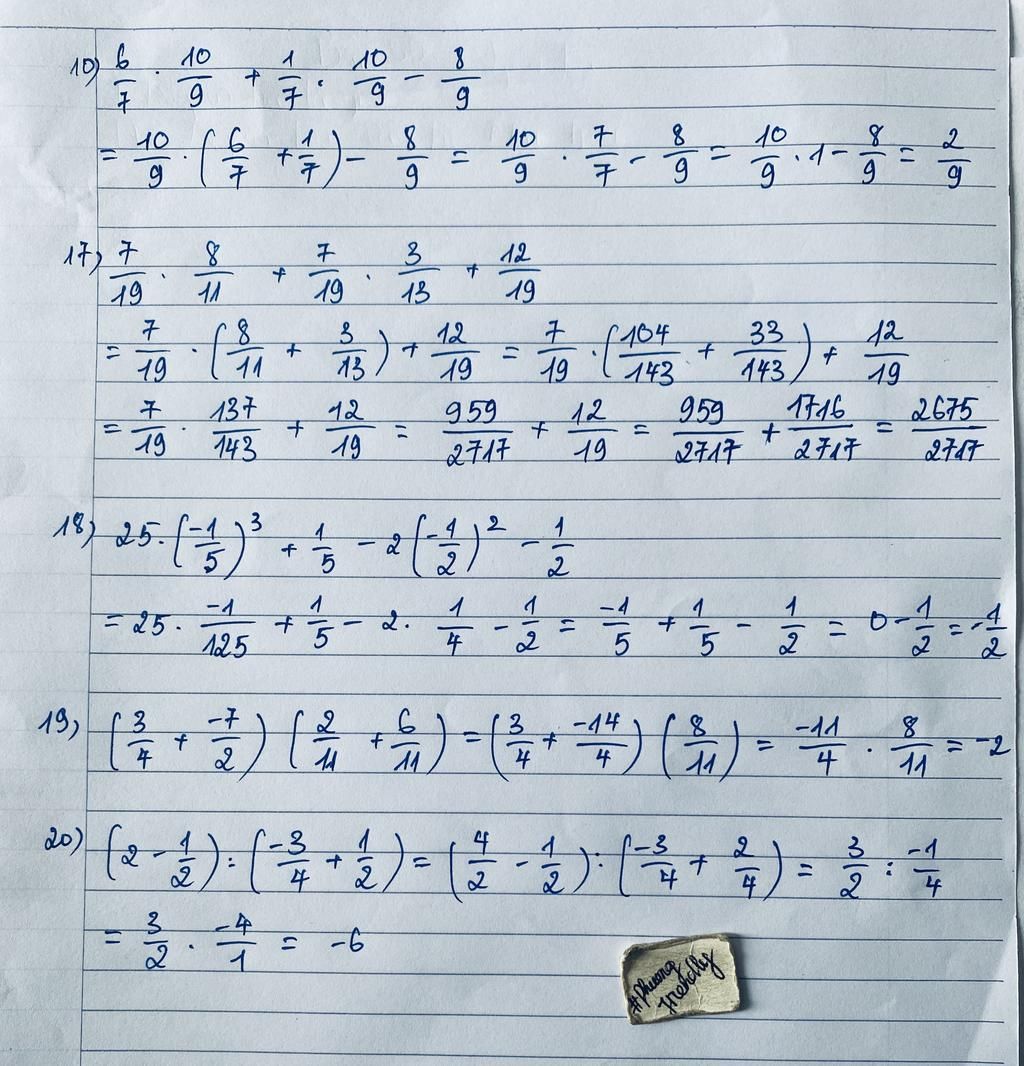 10) 6/7 . 10/9 + 1/7 . 10/9 - 8/9
= 10/9 . (6/7 + 1/7) - 8/9 = 10/9 . 7/7 - 8/9 = 10/9 . 1 - 8/9 = 2/9
17) 7/19 . 8/11 + 7/19 . 3/13 + 12/19
= 7/19 . (8/11 + 3/13) + 12/19 = 7/19 . (104/143 + 33/143) + 12/19
= 7/19 . 137/143 + 12/19 = 959/2717 + 12/19 = 959/2717 + 1716/2717 = 2675/2717
18) 25 . (-1/5)^3 + 1/5 - 2 (-1/2)^2 - 1/2
= 25 . -1/125 + 1/5 - 2 . 1/4 - 1/2 = -1/5 + 1/5 - 1/2 = 0 - 1/2 = -1/2
19) (3/4 + -7/2) (2/11 + 6/11) = (3/4 + -14/4) (8/11) = -11/4 . 8/11 = -2
20) (2 - 1/2) : (-3/4 + 1/2) = (4/2 - 1/2) : (-3/4 + 2/4) = 3/2 : -1/4
= 3/2 . -4/1 = -6
#phuong
friendly